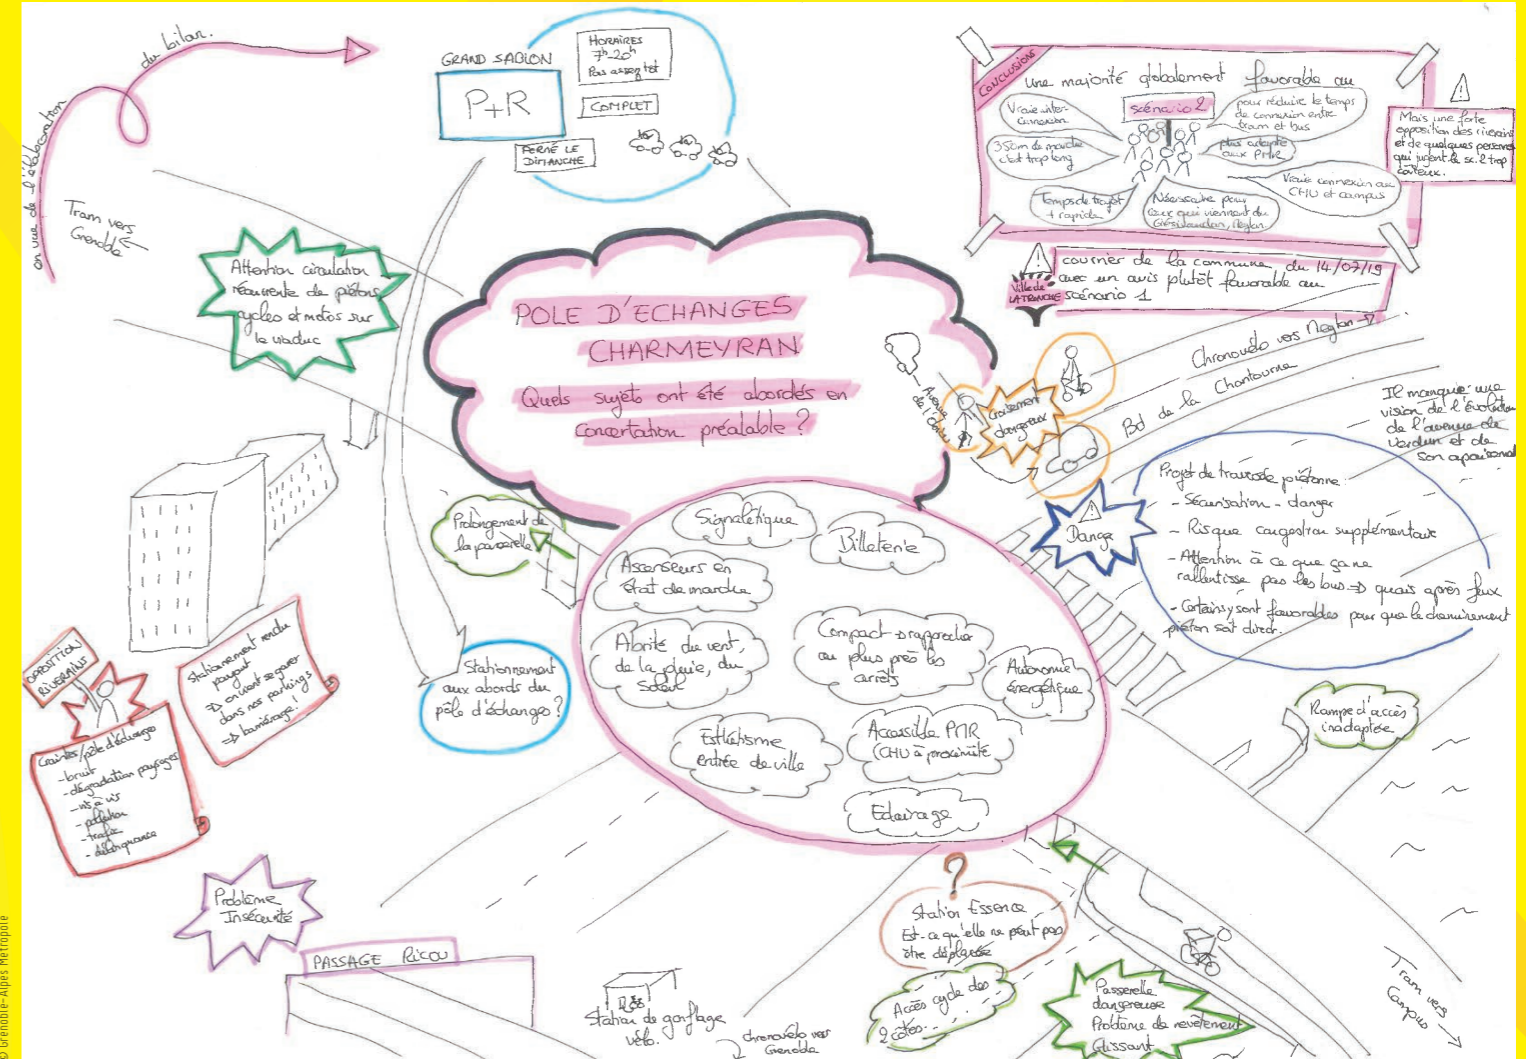 en vue de l'élaboration
du bilan.
Tram vers
Grenoble
GRAND SABLON
P+R
HORAIRES
7h-20h
Pas assez tôt
COMPLET
FERMÉ LE
DIMANCHE
CONCLUSIONS
une majorité globalement favorable au
scénario 2
Vraie inter-
connexion
350m de marche
c'est trop long
Temps de trajet
+ rapide
Nécessaire pour
ceux qui viennent du
Grésivaudan, Meylan.
pour réduire le temps
de connexion entre
tram et bus
plus adapté
aux PMR
Vraie connexion au
CHU et campus
Mais une forte
opposition des riverains
et de quelques personnes
qui jugent le sc. 2 trop
coûteux.
Ville de
LA TRONCHE
courrier de la commune du 14/07/19
avec un avis plutôt favorable au
scénario 1
Attention circulation
récurrente de piétons
cycles et motos sur
le viaduc
POLE D'ECHANGES
CHARMEYRAN
Quels sujets ont été abordés en
Concertation préalable ?
Avenue
de
Croisement
dangereux
Chronovélo vers Meylan
Bd de la Chantourne
Il manque une
vision de l'évolution
de l'avenue de
Verdun et de
son
Danger
Projet de traversée piétonne:
- Sécurisation - danger
- Risque congestion supplémentaire
- Attention à ce que ça ne
rallentisse pas les bus => quais après feux
- Certains y sont favorables pour que le cheminement
piéton soit direct.
Prolongement de
la passerelle
Signalétique
Billeterie
Ascenseurs en
état de marche
Abrité du vent,
de la pluie, du
Soleil
Compact → rapprocher
au plus près les
arrêts
Autonomie
énergétique
Esthétisme
entrée de ville
Accessible PMR
(CHU à proximité
Eclairage
Stationnement
aux abords du
pôle d'échanges ?
OPPOSITION
RIVERAINS
Stationnement rendu
payant
=> on vient se garer
dans nos parkings
=> barriérage!
Craintes/pôle d'échange
- bruit
- dégradation paysages
- vis à vis
- pollution
- trafic
- délinquance
Rampe d'accès
inadaptée
Problème
Insécurité
PASSAGE RICOU
Station de gonflage
vélo.
chronovélo vers
Grenoble
?
Station Essence
Est-ce qu'elle ne peut pas
être déplacée
Accès cycle des
2 côtés
Passerelle
dangereuse
Problème de revêtement
Glissant
Tram vers
Campus
© Grenoble-Alpes Métropole